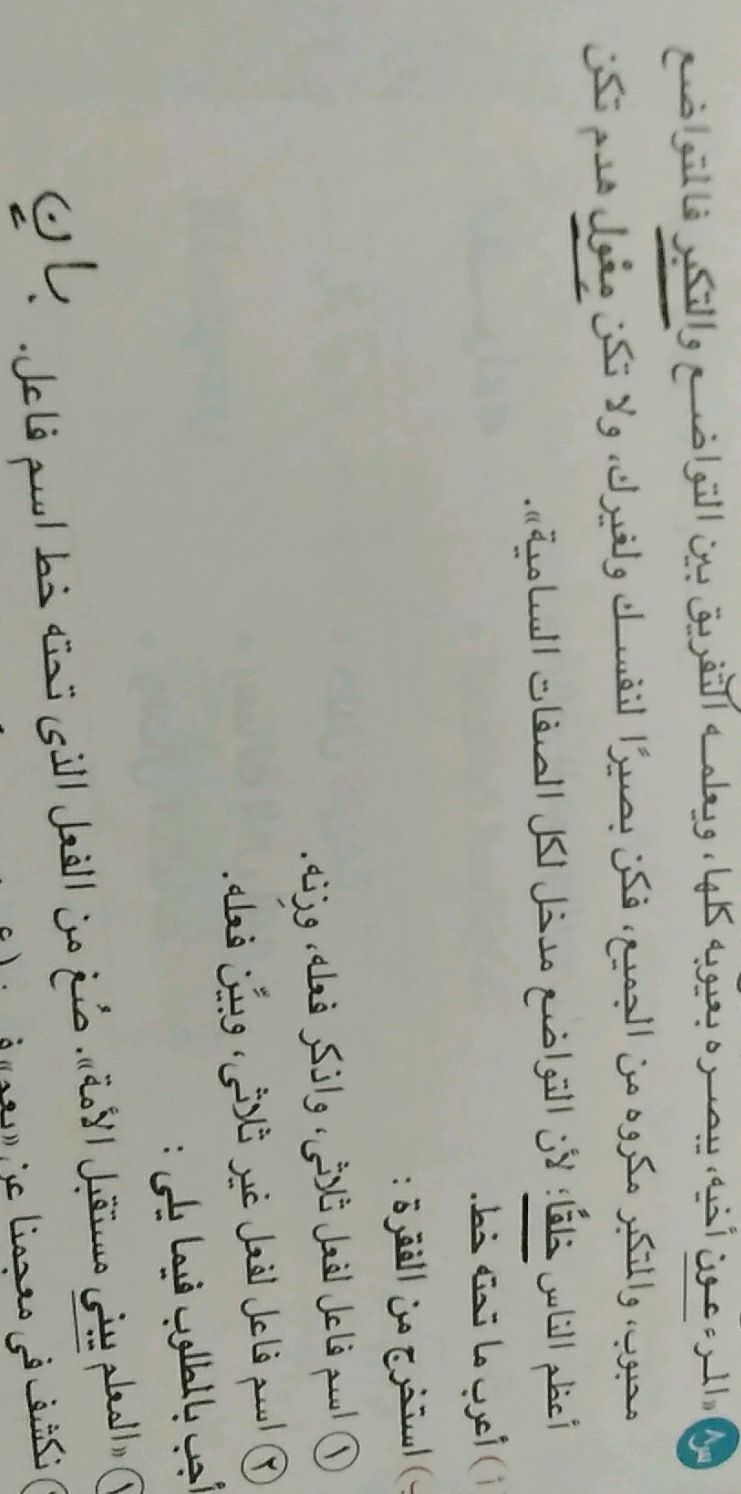 س٨ «المرء عون أخيه، يبصره بعيوبه كلها، ويعلمه التفريق بين التواضع والتكبر فالمتواضع
محبوب، والمتكبر مكروه من الجميع، فكن بصيرًا لنفسك ولغيرك، ولا تكن مغول هدم تكن
أعظم الناس خلقًا؛ لأن التواضع مدخل لكل الصفات السامية».
أ) أعرب ما تحته خط.
ب) استخرج من الفقرة :
١ اسم فاعل لفعل ثلاثى، واذكر فعله، وزِنه.
٢ اسم فاعل لفعل غير ثلاثى، وبيِّن فعله.
أجب بالمطلوب فيما يلى :
١ «المعلم يبنى مستقبل الأمة». صُغ من الفعل الذى تحته خط اسم فاعل. بانٍ
نكشف فى معجمنا عن